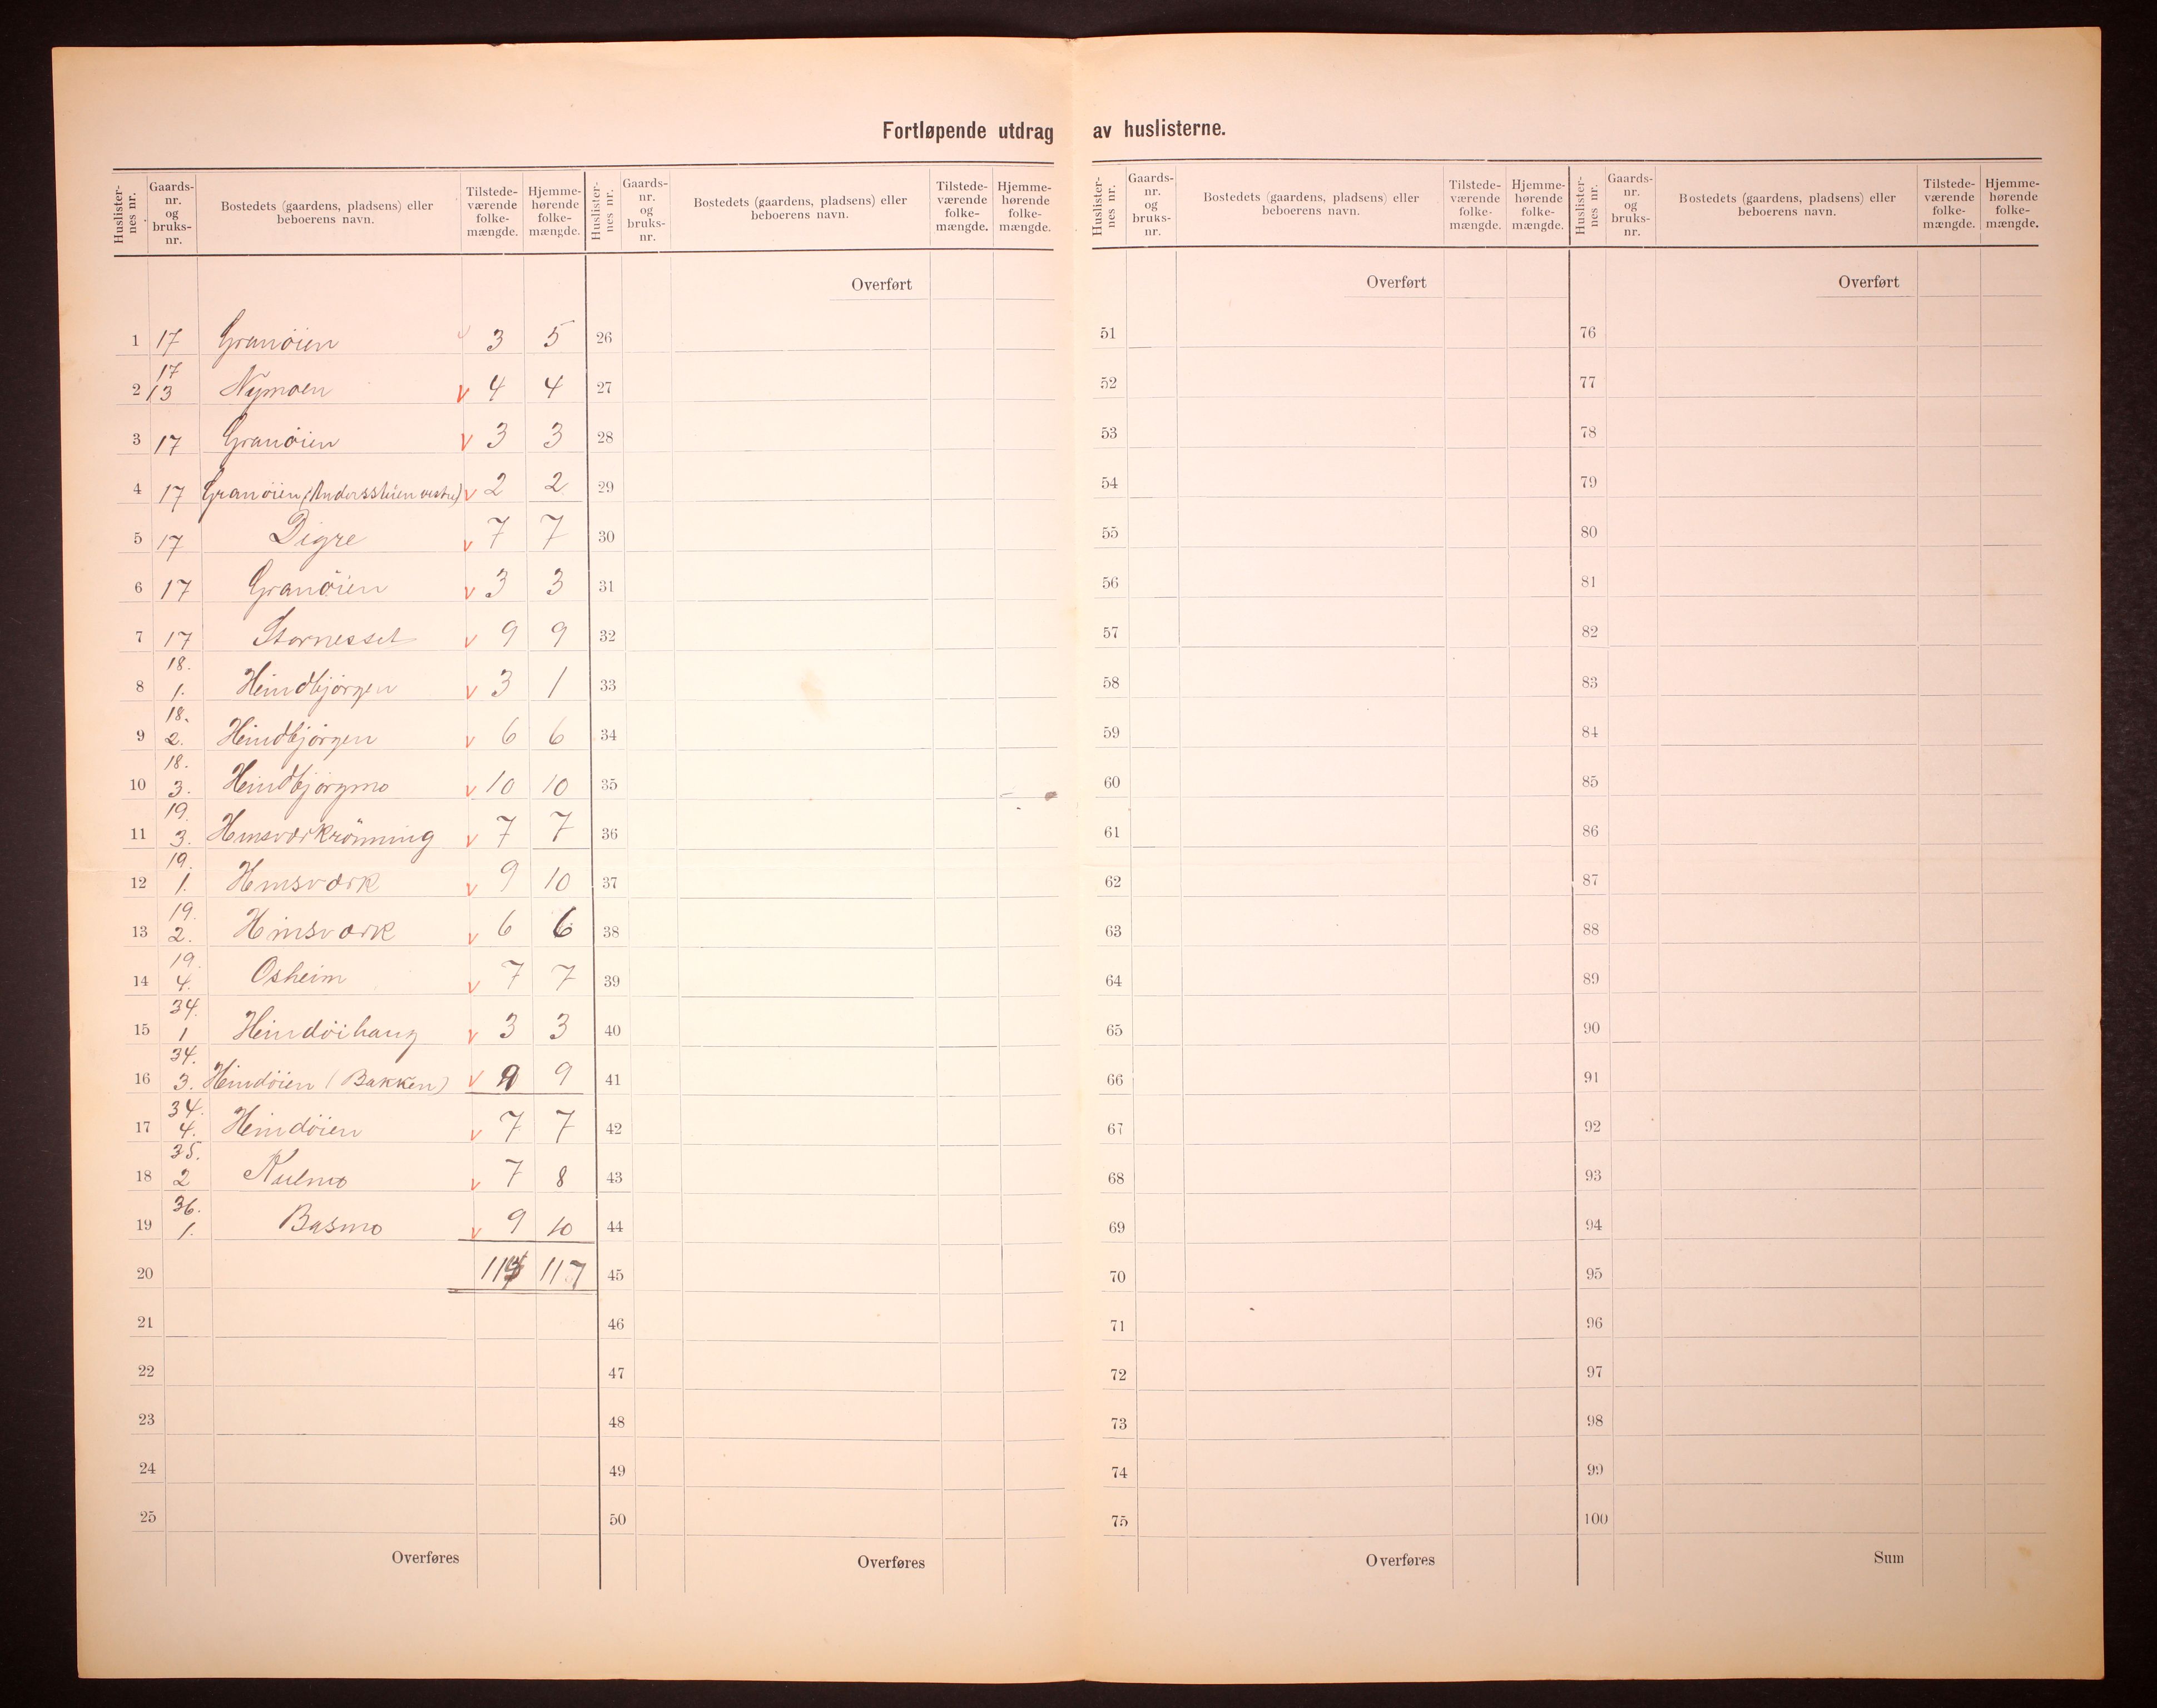 Fortløpende utdrag av huslisterne.
Huslister-nes nr. Gaards-nr. og bruks-nr. Bostedets (gaardens, pladsens) eller beboerens navn. Tilstede-værende folke-mængde. Hjemme-hørende folke-mængde.
1 17 Granöien 3 5
2 17 13 Nymoen v 4 4
3 17 Granöien v 3 3
4 17 Granöien (Anderssteien vestre) v 2 2
5 17 Digre v 7 7
6 17 Granöien v 3 3
7 17 Stornesset v 9 9
8 18. 1. Heindbjörgen v 3 1
9 18. 2. Heindbjörgen v 6 6
10 18. 3. Heindbjörgmo v 10 10
11 19. 3. Hinsværkrönning v 7 7
12 19. 1. Hinsværk v 9 10
13 19. 2. Hinsværk v 6 6
14 19. 4. Osheim v 7 7
15 34. 1 Heindöihaug v 3 3
16 34. 3. Heindöien (Bakken) v 9 9
17 34. 4. Heindöien v 7 7
18 35. 2 Kulmo v 7 8
19 36. 1. Basmo v 9 10
20 117
21
22
23
24
25
Overføres
Huslister-nes nr. Gaards-nr. og bruks-nr. Bostedets (gaardens, pladsens) eller beboerens navn. Tilstede-værende folke-mængde. Hjemme-hørende folke-mængde.
Overført
26
27
28
29
30
31
32
33
34
35
36
37
38
39
40
41
42
43
44
45
46
47
48
49
50
Overføres
Huslister-nes nr. Gaards-nr. og bruks-nr. Bostedets (gaardens, pladsens) eller beboerens navn. Tilstede-værende folke-mængde. Hjemme-hørende folke-mængde.
Overført
51
52
53
54
55
56
57
58
59
60
61
62
63
64
65
66
67
68
69
70
71
72
73
74
75
Overføres
Huslister-nes nr. Gaards-nr. og bruks-nr. Bostedets (gaardens, pladsens) eller beboerens navn. Tilstede-værende folke-mængde. Hjemme-hørende folke-mængde.
Overført
76
77
78
79
80
81
82
83
84
85
86
87
88
89
90
91
92
93
94
95
96
97
98
99
100
Sum